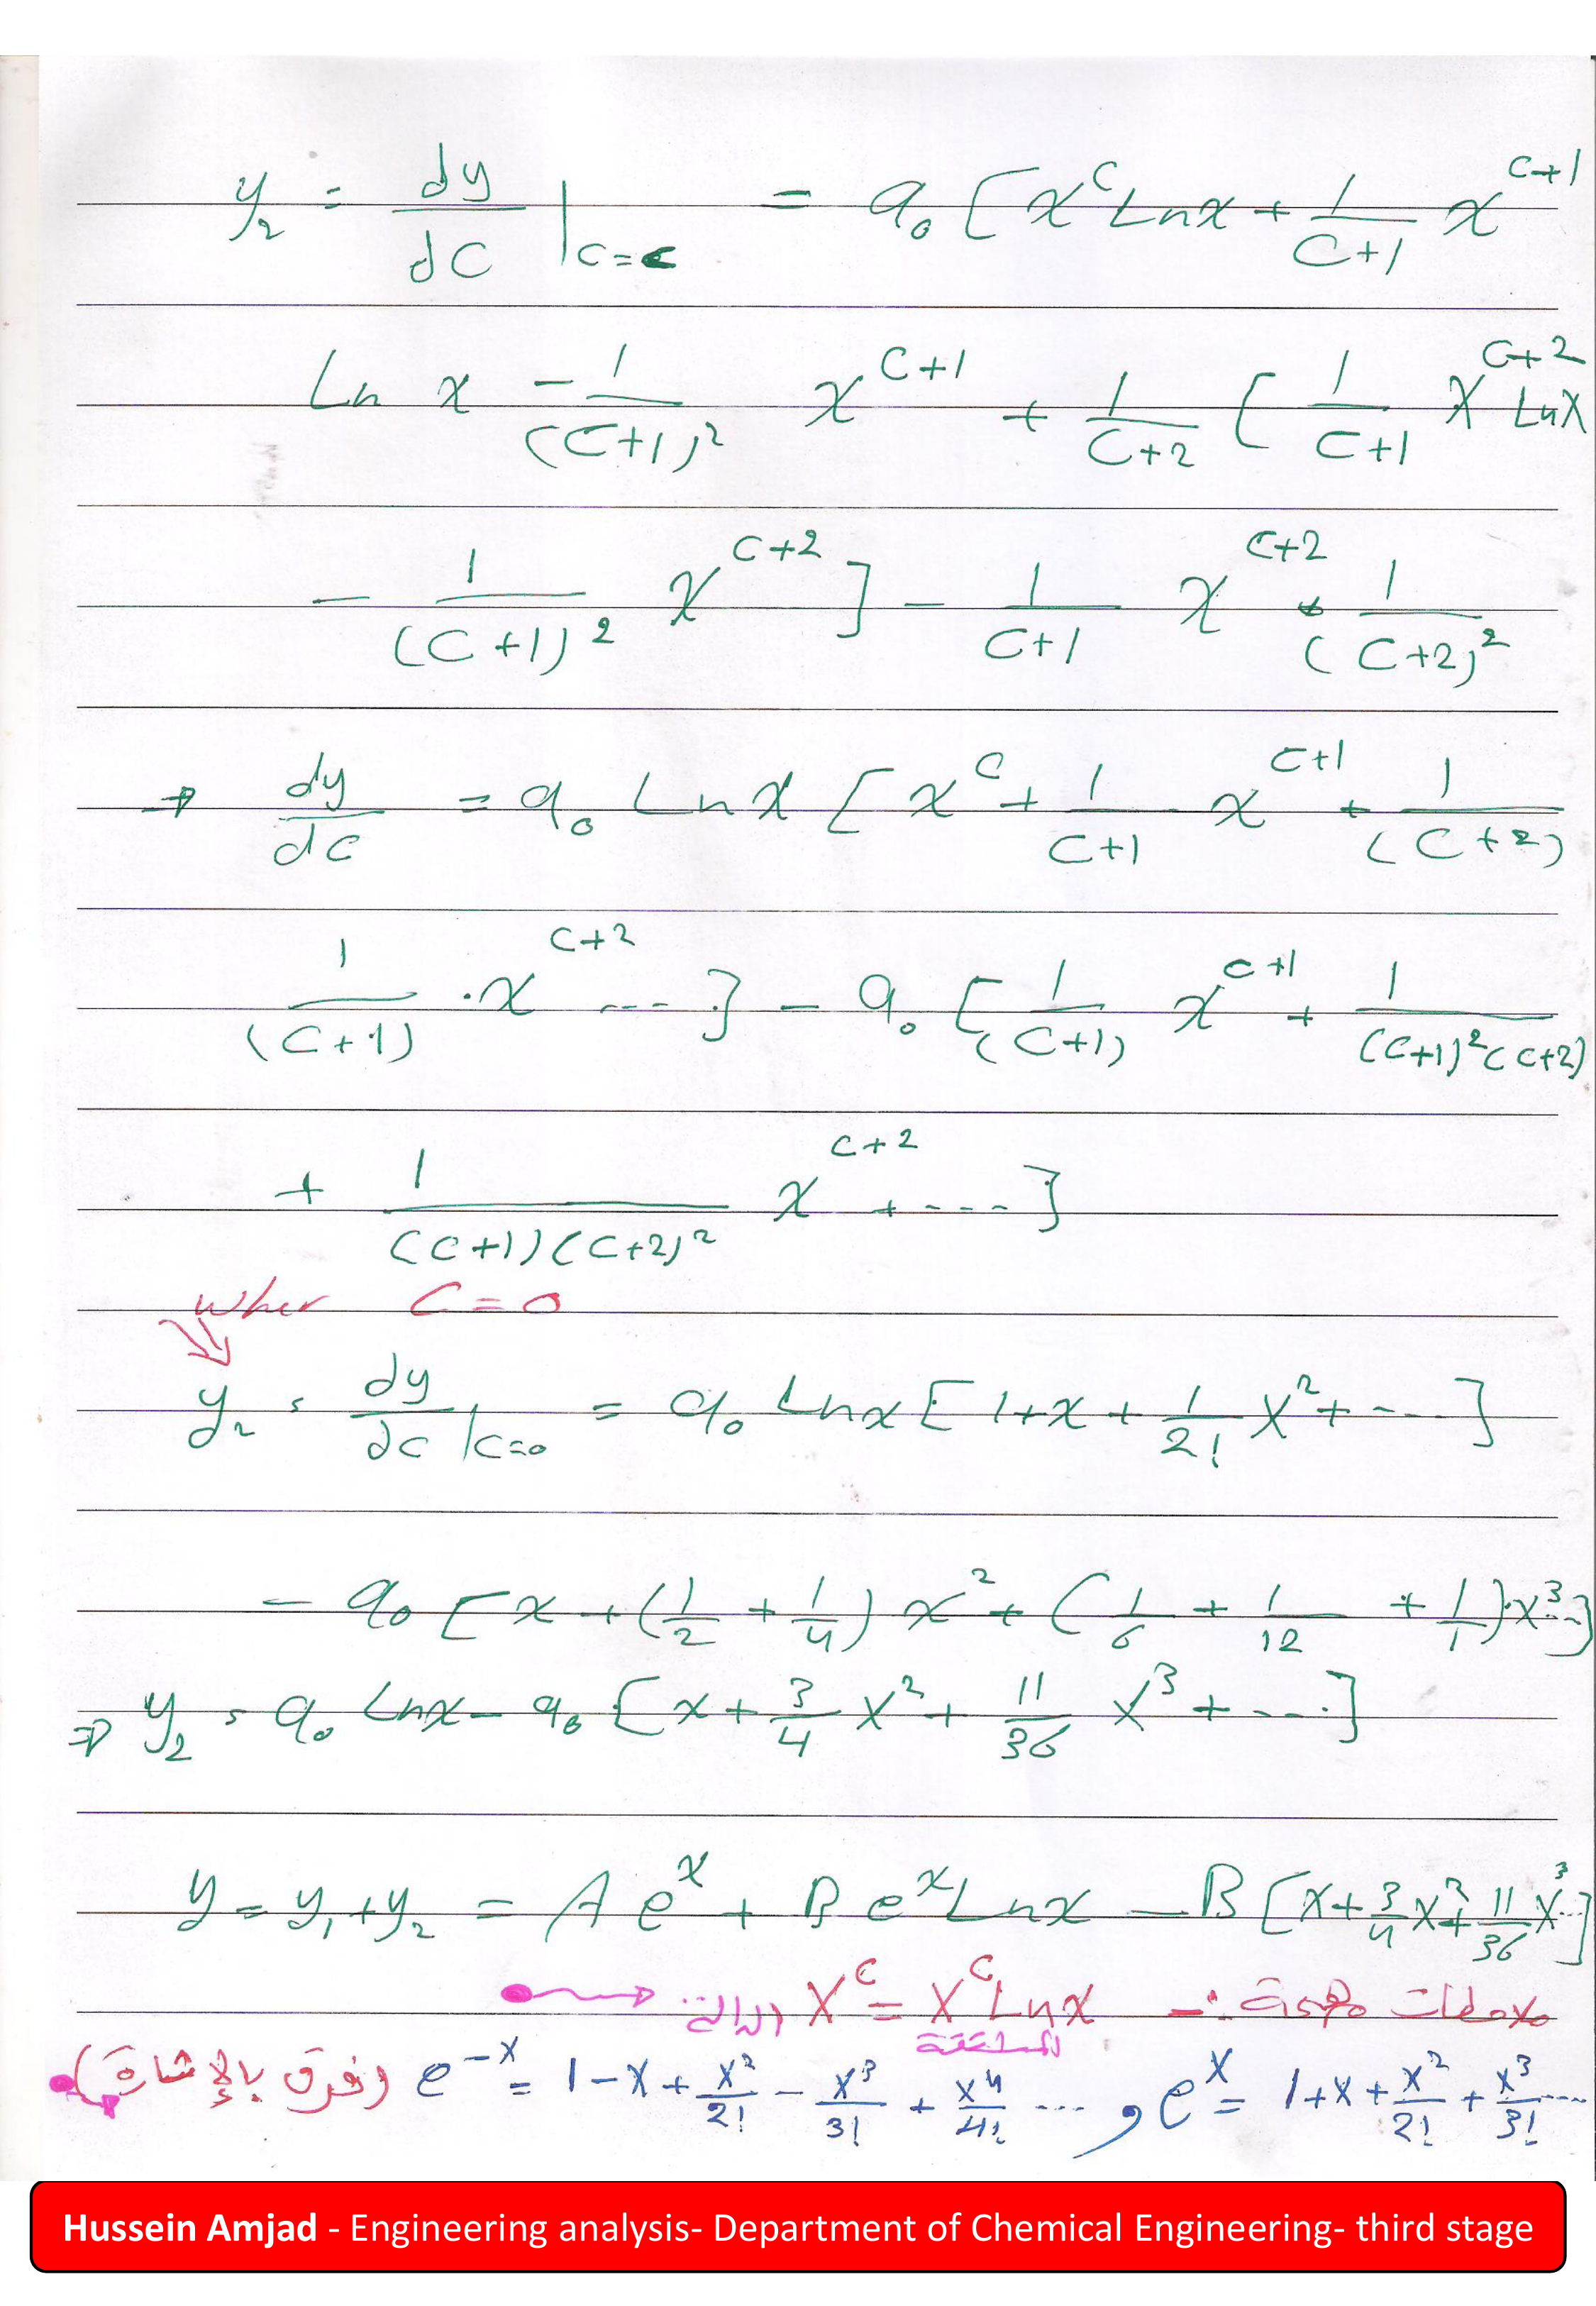 y₂ = dy/dC |C=c = a₀ [x^C Ln x + 1/(C+1) x^(C+1)
Ln x - 1/(C+1)² x^(C+1) + 1/(C+2) [ 1/(C+1) x^(C+2) Ln x
- 1/(C+1)² x^(C+2) ] - 1/(C+1) x^(C+2) * 1/(C+2)²
→ dy/dC = a₀ Ln x [ x^C + 1/(C+1) x^(C+1) + 1/(C+2)
1/(C+1) · x^(C+2) --- ] - a₀ [ 1/(C+1) x^(C+1) + 1/((C+1)²(C+2))
+ 1/((C+1)(C+2)²) x^(C+2) + ---- ]
wher C = 0
y₂ = dy/dC |C=0 = a₀ Ln x [ 1+x + 1/2! x² + --- ]
- a₀ [ x + (1/2 + 1/4) x² + (1/6 + 1/12 + 1/1)·x³ -- ]
⇒ y₂ = a₀ Ln x - a₀ [ x + 3/4 x² + 11/36 x³ + ---- ]
y = y₁ + y₂ = A e^x + B e^x Ln x - B [ x + 3/4 x² + 11/36 x³ --- ]
ملاحظات مهمة :- x^C = x^C Ln x الدالة
المشتقة
e^x = 1+x + x²/2! + x³/3! ---- , e^-x = 1 - x + x²/2! - x³/3! + x⁴/4! --- (فرق بالإشارة)
Hussein Amjad - Engineering analysis- Department of Chemical Engineering- third stage